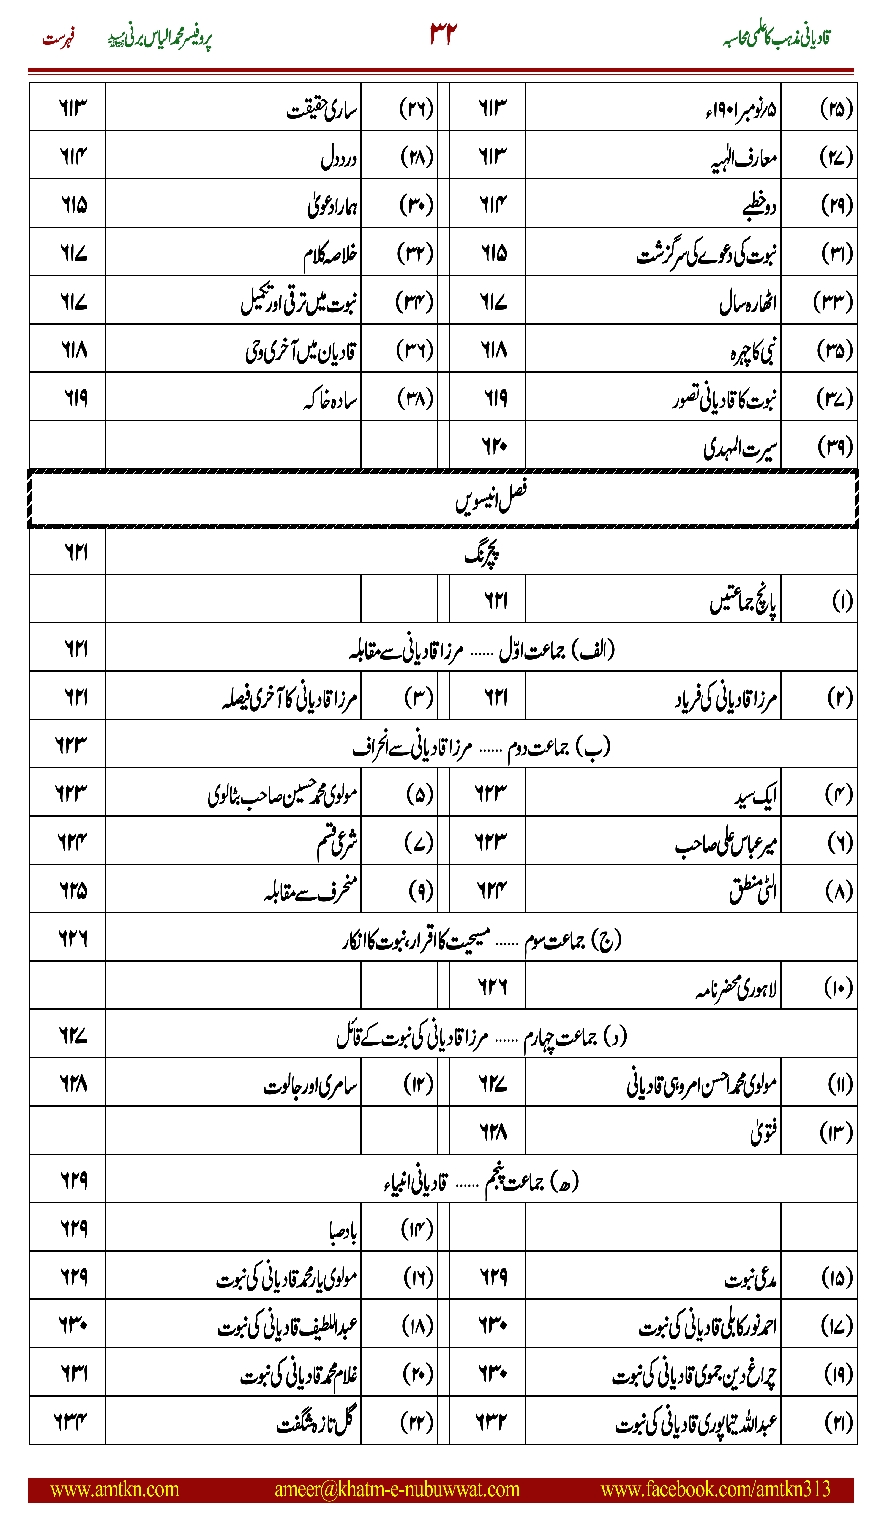 قادیانی مذہب کا علمی محاسبہ ۳۲ پروفیسر محمد الیاس برنی فہرست
(۲۵) ۵/نومبر ۱۹۰۱ء ۶۱۳ (۲۶) ساری حقیقت ۶۱۳
(۲۷) معارف الٰہیہ ۶۱۳ (۲۸) درد دل ۶۱۴
(۲۹) دو خطبے ۶۱۴ (۳۰) ہمارا دعویٰ ۶۱۵
(۳۱) نبوت کی دعوے کی سرگزشت ۶۱۵ (۳۲) خلاصہ کلام ۶۱۷
(۳۳) اٹھارہ سال ۶۱۷ (۳۴) نبوت میں ترقی اور تکمیل ۶۱۷
(۳۵) نبی کا چہرہ ۶۱۸ (۳۶) قادیان میں آخری وحی ۶۱۸
(۳۷) نبوت کا قادیانی تصور ۶۱۹ (۳۸) سادہ خاکہ ۶۱۹
(۳۹) سیرت المہدی ۶۲۰
فصل انیسویں
پچرنگ ۶۲۱
(۱) پانچ جماعتیں ۶۲۱
(الف) جماعت اوّل ...... مرزا قادیانی سے مقابلہ ۶۲۱
(۲) مرزا قادیانی کی فریاد ۶۲۱ (۳) مرزا قادیانی کا آخری فیصلہ ۶۲۱
(ب) جماعت دوم ...... مرزا قادیانی سے انحراف ۶۲۳
(۴) ایک سید ۶۲۳ (۵) مولوی محمد حسین صاحب بٹالوی ۶۲۳
(۶) میر عباس علی صاحب ۶۲۳ (۷) شرعی قسم ۶۲۴
(۸) الٹی منطق ۶۲۴ (۹) منحرف سے مقابلہ ۶۲۵
(ج) جماعت سوم ...... مسیحیت کا اقرار، نبوت کا انکار ۶۲۶
(۱۰) لاہوری محضر نامہ ۶۲۶
(د) جماعت چہارم ...... مرزا قادیانی کی نبوت کے قائل ۶۲۷
(۱۱) مولوی محمد احسن امروہی قادیانی ۶۲۷ (۱۲) سامری اور جالوت ۶۲۸
(۱۳) فتویٰ ۶۲۸
(ھ) جماعت پنجم ...... قادیانی انبیاء ۶۲۹
(۱۴) باد صبا ۶۲۹
(۱۵) مدعی نبوت ۶۲۹ (۱۶) مولوی یار محمد قادیانی کی نبوت ۶۲۹
(۱۷) احمد نور کابلی قادیانی کی نبوت ۶۳۰ (۱۸) عبداللطیف قادیانی کی نبوت ۶۳۰
(۱۹) چراغ دین جموی قادیانی کی نبوت ۶۳۰ (۲۰) غلام محمد قادیانی کی نبوت ۶۳۱
(۲۱) عبداللہ تیماپوری قادیانی کی نبوت ۶۳۲ (۲۲) گل تازہ شگفت ۶۳۴
www.amtkn.com ameer@khatm-e-nubuwwat.com www.facebook.com/amtkn313